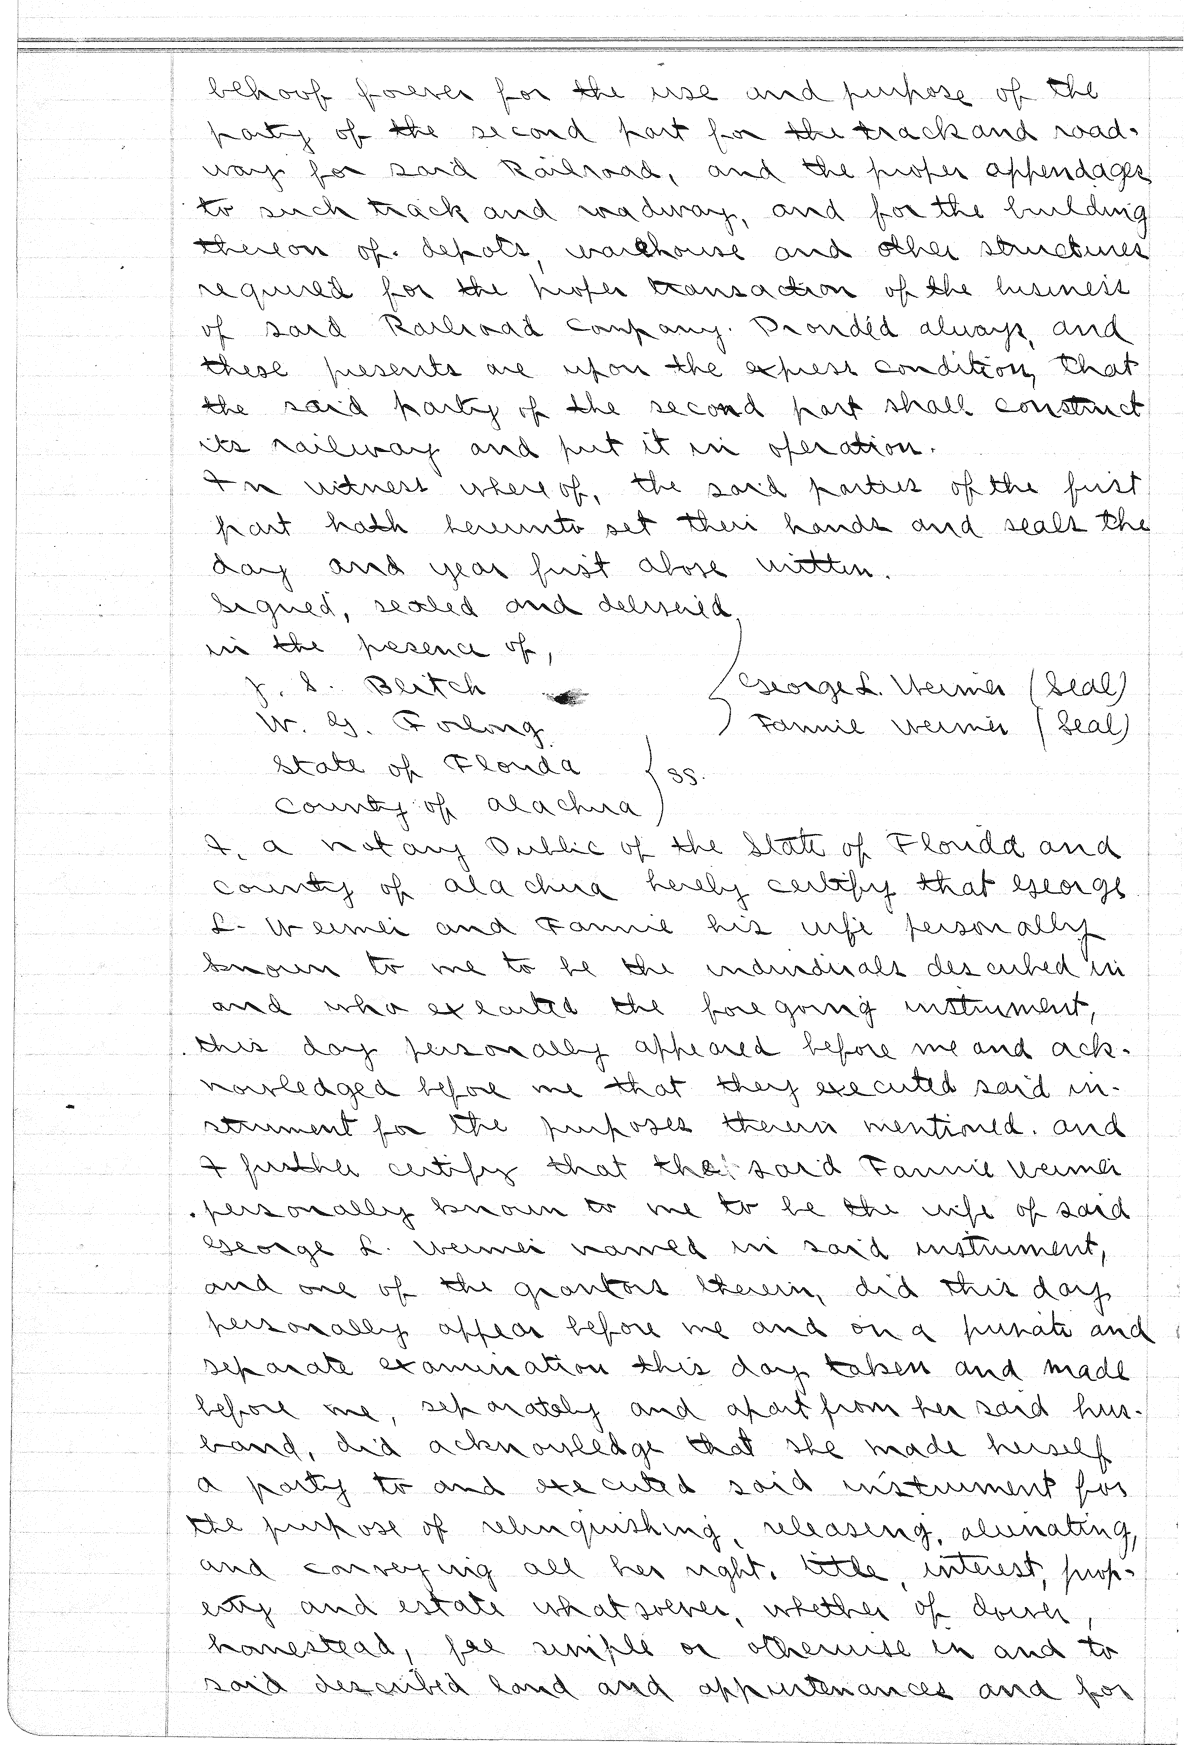 behoof forever for the use and purpose of the
party of the second part for the track and road-
way for said Railroad, and the proper appendages
to such track and roadway, and for the building
thereon of depots, warehouse and other structures
required for the proper transaction of the business
of said Railroad Company. Provided always, and
these presents are upon the express condition, that
the said party of the second part shall construct
its railway and put it in operation.
In witness whereof, the said parties of the first
part hath hereunto set their hands and seals the
day and year first above written.
Signed, sealed and delivered
in the presence of,
J. S. Blitch
George L. Weimer (Seal)
W. G. Forlong
Fannie Weimer (Seal)
State of Florida
ss.
County of Alachua
I, a notary Public of the State of Florida and
County of Alachua hereby certify that George
L. Weimer and Fannie his wife personally
known to me to be the individuals described in
and who executed the foregoing instrument,
this day personally appeared before me and ack-
nowledged before me that they executed said in-
strument for the purposes therein mentioned. and
I further certify that the said Fannie Weimer
personally known to me to be the wife of said
George L. Weimer named in said instrument,
and one of the grantors therein, did this day
personally appear before me and on a private and
separate examination this day taken and made
before me, separately and apart from her said hus-
band, did acknowledge that she made herself
a party to and executed said instrument for
the purpose of relinquishing, releasing, alienating,
and conveying all her right, title, interest, prop-
erty and estate whatsoever, whether of dower,
homestead, fee simple or otherwise in and to
said described land and appurtenances and for